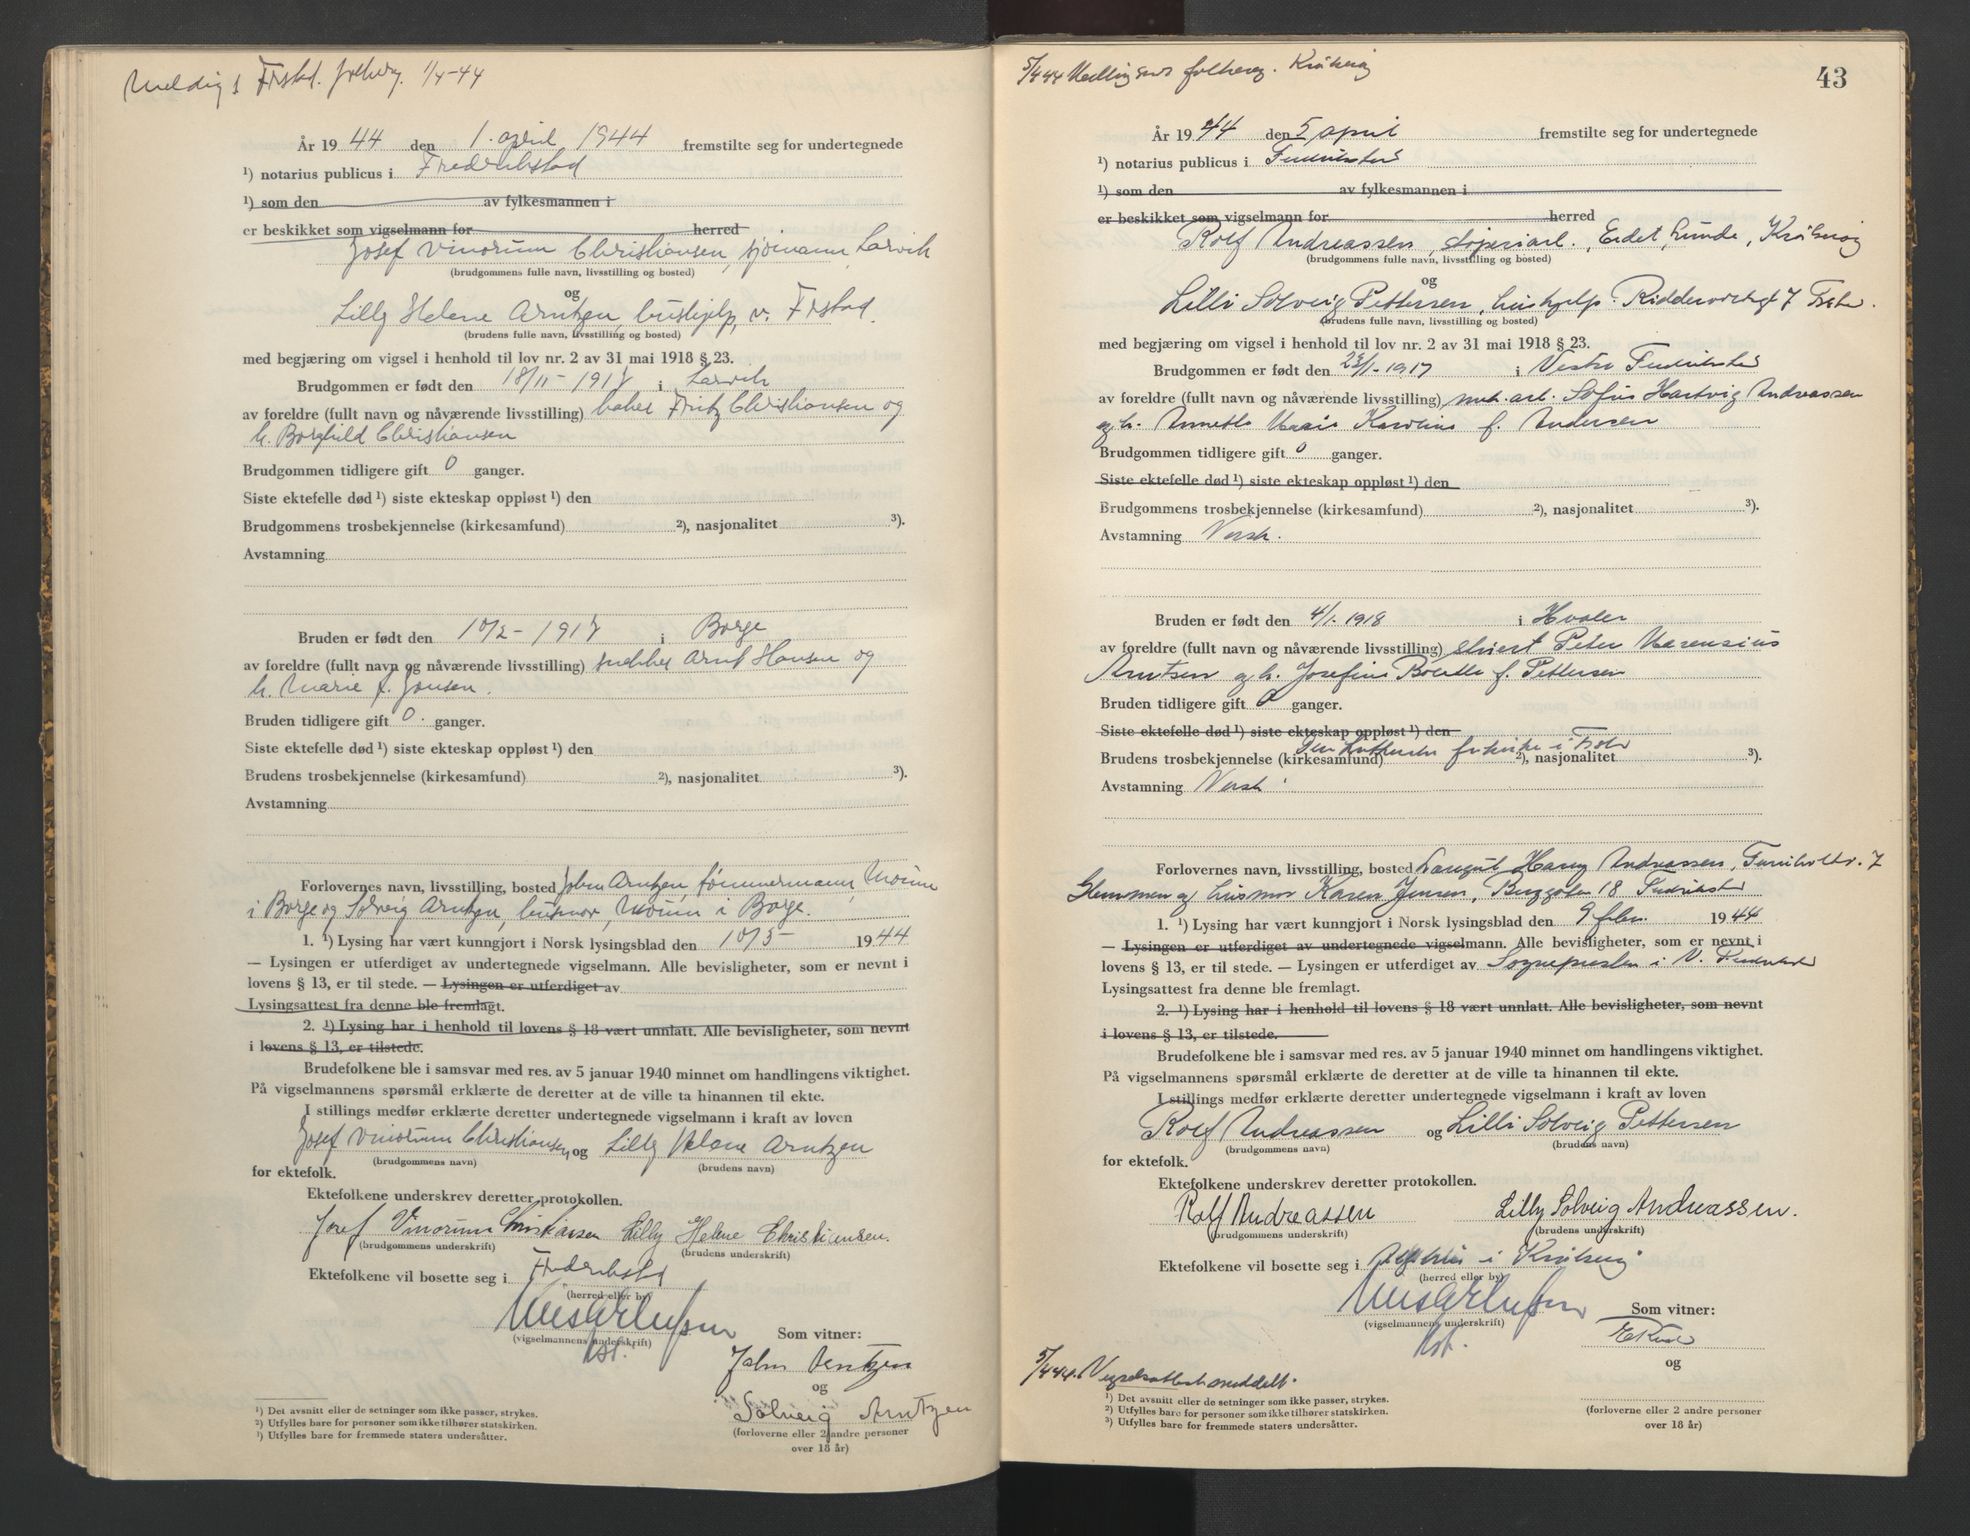 Frstad. folkereg. 1/4-44
År 1944 den 1. april 1944 fremstilte seg for undertegnede
¹) notarius publicus i Fredrikstad
¹) som den av fylkesmannen i
er beskikket som vigselmann for herred
Josef Vinorum Christiansen, sjømann, Larvik
(brudgommens fulle navn, livsstilling og bosted)
og
Lilly Helene Arntzen, hushjelp, v. Frstad.
(brudens fulle navn, livsstilling og bosted)
med begjæring om vigsel i henhold til lov nr. 2 av 31 mai 1918 § 23.
Brudgommen er født den 18/11-1917 i Larvik
av foreldre (fullt navn og nåværende livsstilling) baker Fritz Christiansen og
h. Borghild Christiansen
Brudgommen tidligere gift 0 ganger.
Siste ektefelle død ¹) siste ekteskap oppløst ¹) den
Brudgommens trosbekjennelse (kirkesamfund) ²), nasjonalitet ³).
Avstamning
Bruden er født den 10/2-1917 i Borge
av foreldre (fullt navn og nåværende livsstilling) snekker Arnt Hansen og
h. Marie f. Jonsen.
Bruden tidligere gift 0. ganger.
Siste ektefelle død ¹) siste ekteskap oppløst ¹) den
Brudens trosbekjennelse (kirkesamfund) ²), nasjonalitet ³).
Avstamning
Forlovernes navn, livsstilling, bosted John Arntzen, tømmermann, Moum
i Borge og Solveig Arntzen, husmor, Moum i Borge.
1. ¹) Lysing har vært kunngjort i Norsk lysingsblad den 10/3- 1944
— Lysingen er utferdiget av undertegnede vigselmann. Alle bevisligheter, som er nevnt i
lovens § 13, er til stede. — Lysingen er utferdiget av
Lysingsattest fra denne ble fremlagt.
2. ¹) Lysing har i henhold til lovens § 18 vært unnlatt. Alle bevisligheter, som nevnt
i lovens § 13, er tilstede.
Brudefolkene ble i samsvar med res. av 5 januar 1940 minnet om handlingens viktighet.
På vigselmannens spørsmål erklærte de deretter at de ville ta hinannen til ekte.
I stillings medfør erklærte deretter undertegnede vigselmann i kraft av loven
Josef Vinorum Christiansen, og Lilly Helene Arntzen
(brudgommens navn) (brudens navn)
for ektefolk.
Ektefolkene underskrev deretter protokollen.
Josef Vinorum Christiansen Lilly Helene Christiansen.
(brudgommens underskrift) (brudens underskrift)
Ektefolkene vil bosette seg i Fredrikstad
(herred eller by)
(vigselmannens underskrift) Som vitner:
John Arntzen
og
Solveig Arntzen
(forloverne eller 2 andre personer
over 18 år)
¹) Det avsnitt eller de setninger som ikke passer, strykes.
²) Utfylles bare for personer som ikke tilhører statskirken.
³) Utfylles bare for fremmede staters undersåtter.
43
5/4 44 folkereg. Kråkerøy
År 1944 den 5 april fremstilte seg for undertegnede
¹) notarius publicus i Fredrikstad
¹) som den av fylkesmannen i
er beskikket som vigselmann for herred
Rolf Andreassen, sliperiarb., Kråkerøy
(brudgommens fulle navn, livsstilling og bosted)
og
Lilli Solveig Pettersen, hushjelp. 7
(brudens fulle navn, livsstilling og bosted)
med begjæring om vigsel i henhold til lov nr. 2 av 31 mai 1918 § 23.
Brudgommen er født den 1917 i Vestre Fredrikstad
av foreldre (fullt navn og nåværende livsstilling) arb. Sofus Hartvig Andreassen
og h. Karoline f. Andersen
Brudgommen tidligere gift 0 ganger.
Siste ektefelle død ¹) siste ekteskap oppløst ¹) den
Brudgommens trosbekjennelse (kirkesamfund) ²), nasjonalitet ³).
Avstamning Norsk.
Bruden er født den 4/1.1918 i Hvaler
av foreldre (fullt navn og nåværende livsstilling) Peter Marensius
Arntsen og h. Josefine f. Pettersen
Bruden tidligere gift 0 ganger.
Siste ektefelle død ¹) siste ekteskap oppløst ¹) den
Den Lutherske frikirke i Frstd
Brudens trosbekjennelse (kirkesamfund) ²), nasjonalitet ³).
Avstamning Norsk.
Forlovernes navn, livsstilling, bosted Harry Andreassen, 7
Glemmen og husmor Karen Jensen, 18 Fredrikstad
1. ¹) Lysing har vært kunngjort i Norsk lysingsblad den 9 febr. 1944
— Lysingen er utferdiget av undertegnede vigselmann. Alle bevisligheter, som er nevnt i
lovens § 13, er til stede. — Lysingen er utferdiget av Sognepresten i V. Fredrikstad
Lysingsattest fra denne ble fremlagt.
2. ¹) Lysing har i henhold til lovens § 18 vært unnlatt. Alle bevisligheter, som nevnt
i lovens § 13, er tilstede.
Brudefolkene ble i samsvar med res. av 5 januar 1940 minnet om handlingens viktighet.
På vigselmannens spørsmål erklærte de deretter at de ville ta hinannen til ekte.
I stillings medfør erklærte deretter undertegnede vigselmann i kraft av loven
Rolf Andreassen og Lilli Solveig Pettersen
(brudgommens navn) (brudens navn)
for ektefolk.
Ektefolkene underskrev deretter protokollen.
Rolf Andreassen Lilly Solveig Andreassen.
(brudgommens underskrift) (brudens underskrift)
Ektefolkene vil bosette seg i i Kråkerøy
(herred eller by)
(vigselmannens underskrift) Som vitner:
og
5/4 44. Vigselsattest meddelt.
¹) Det avsnitt eller de setninger som ikke passer, strykes.
²) Utfylles bare for personer som ikke tilhører statskirken.
³) Utfylles bare for fremmede staters undersåtter.
(forloverne eller 2 andre personer
over 18 år)